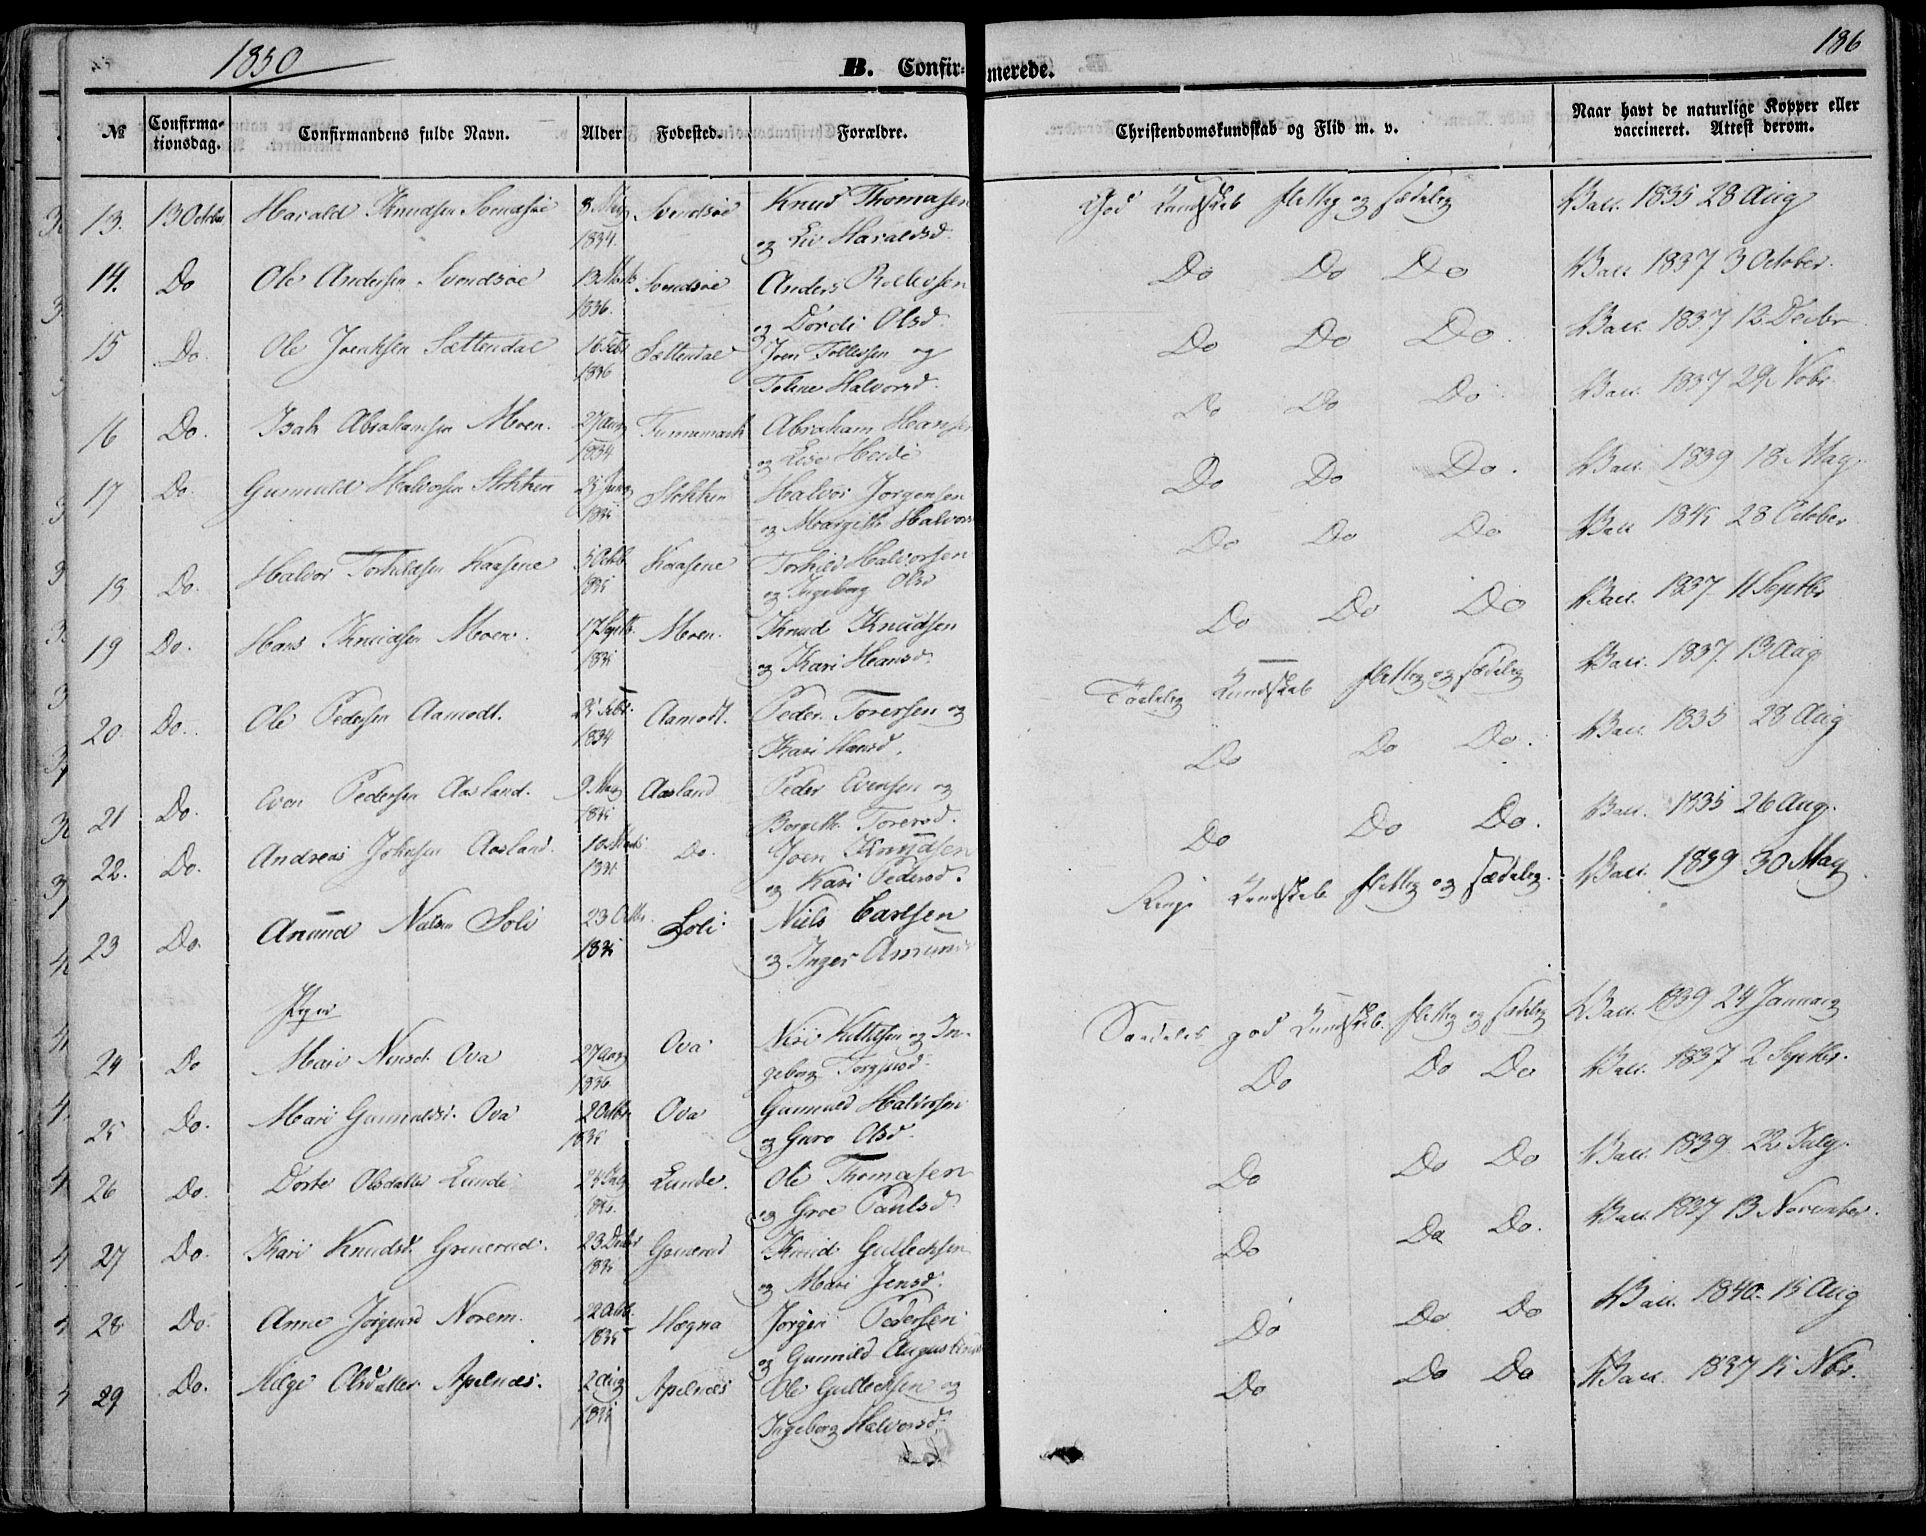 1850
186
B. Confirmerede.
№ Confirmationsdag. Confirmandens fulde Navn. Alder Fødested. Forældre. Christendomskundskab og Flid m. v. Naar havt de naturlige Kopper eller vaccineret. Attest derom.
13. 13 October Harald Knudsen 8 1834. Svendsøe Knud Thomasen og Liv Haraldsd. God Kundskab flittig og sædelig Vacc. 1835 28 Aug
14. Do Ole Andersen Svendsøe 13 Marts 1836. Svendsøe Anders og Dorde Olsd. Do Do Do Vacc 1837 3 October.
15 Do. Ole Sættendal 16 Febr 1836 Sættendal Joen Tollefsen og Halvorsd. Do Do Do. Vacc. 1837 12 Decbr
16 Do. Isak Abrahamsen Moen. 1834 Abraham Hansen og Do Do Do. Vacc. 1837 29 Nobr.
17 Do. Gunnuld Halvorsen Stokken Stokken Halvor Jorgensen og Margith Halvorsd Do Do Do. Vacc. 1839 18 May
18 Do. Halvor Torkildsen Kaasene 5 Octb. 1835 Kaasene Torkild Halvorsen og Ingeborg Olsd Do Do Do Vacc 1845 28 October
19 Do. Hans Knudsen Moen. 17 Septb. 1835 Moen. Knud Knudsen og Kari Hansd. Do Do Do Vacc. 1837. 11 Septbr
20 Do. Ole Pedersen Aamodt. 25 Febr. 1834 Aamodt. Peder Torersen og Kari Hansd. Kundskab flittig og sædelig Vacc. 1837. 13 Aug
21 Do. Even Pedersen Aasland. 9 May 1835 Aasland Peder Evensen og Torersd. Do Do Do. Vacc. 1835 28 Aug
22. Do. Andreas Johnsen Aasland. 10 Marts Do. Joen Knudsen og Kari Pedersd. Do Do Do. Vacc. 1835 26 Aug.
23 Do. Anund Nilsen Soli 23 Octbr. 1835 Soli. Niels Carlsen og Inger Kundskab flittig og sædelig. Vacc. 1839 30 May
Piger
24 Do Mari Ova 27 Aug 1836 Ova og Ingeborg god Kundskab. flittig og sædelig Vacc. 1839 24 January
25 Do. Mari Gunnuldsd. Ova 2 Octbr. 1835 Ova Gunnuld Halvorsen og Guro Olsd. Do Do Do Vacc. 1837 2 Septbr.
26 Do. Dorte Olsdatter Lunde Lunde. Ole Thomasen og Groe Paulsd. Do Do Do Vacc. 1839. 22 July.
27 Do. Kari Knudsd. Gruerud. 23 Decbr 1835 Gruerud Knud Gullecksen og Mari Jensd. Do Do Do. Vacc. 1837 13 November.
28 Do. Anne Jorgensd Norem. 22 Octb. 1835 Hegna Jorgen Pedersen og Gunnild Augustinusd Do Do Do Vacc. 1840. 15 Aug
29 Do. Helge Olsdatter Apelnæs. 2 Aug 1835 Apelnæs Ole Gullecksen og Ingeborg Halvorsd. Do Do Do Vacc. 1837 15 Nbr.